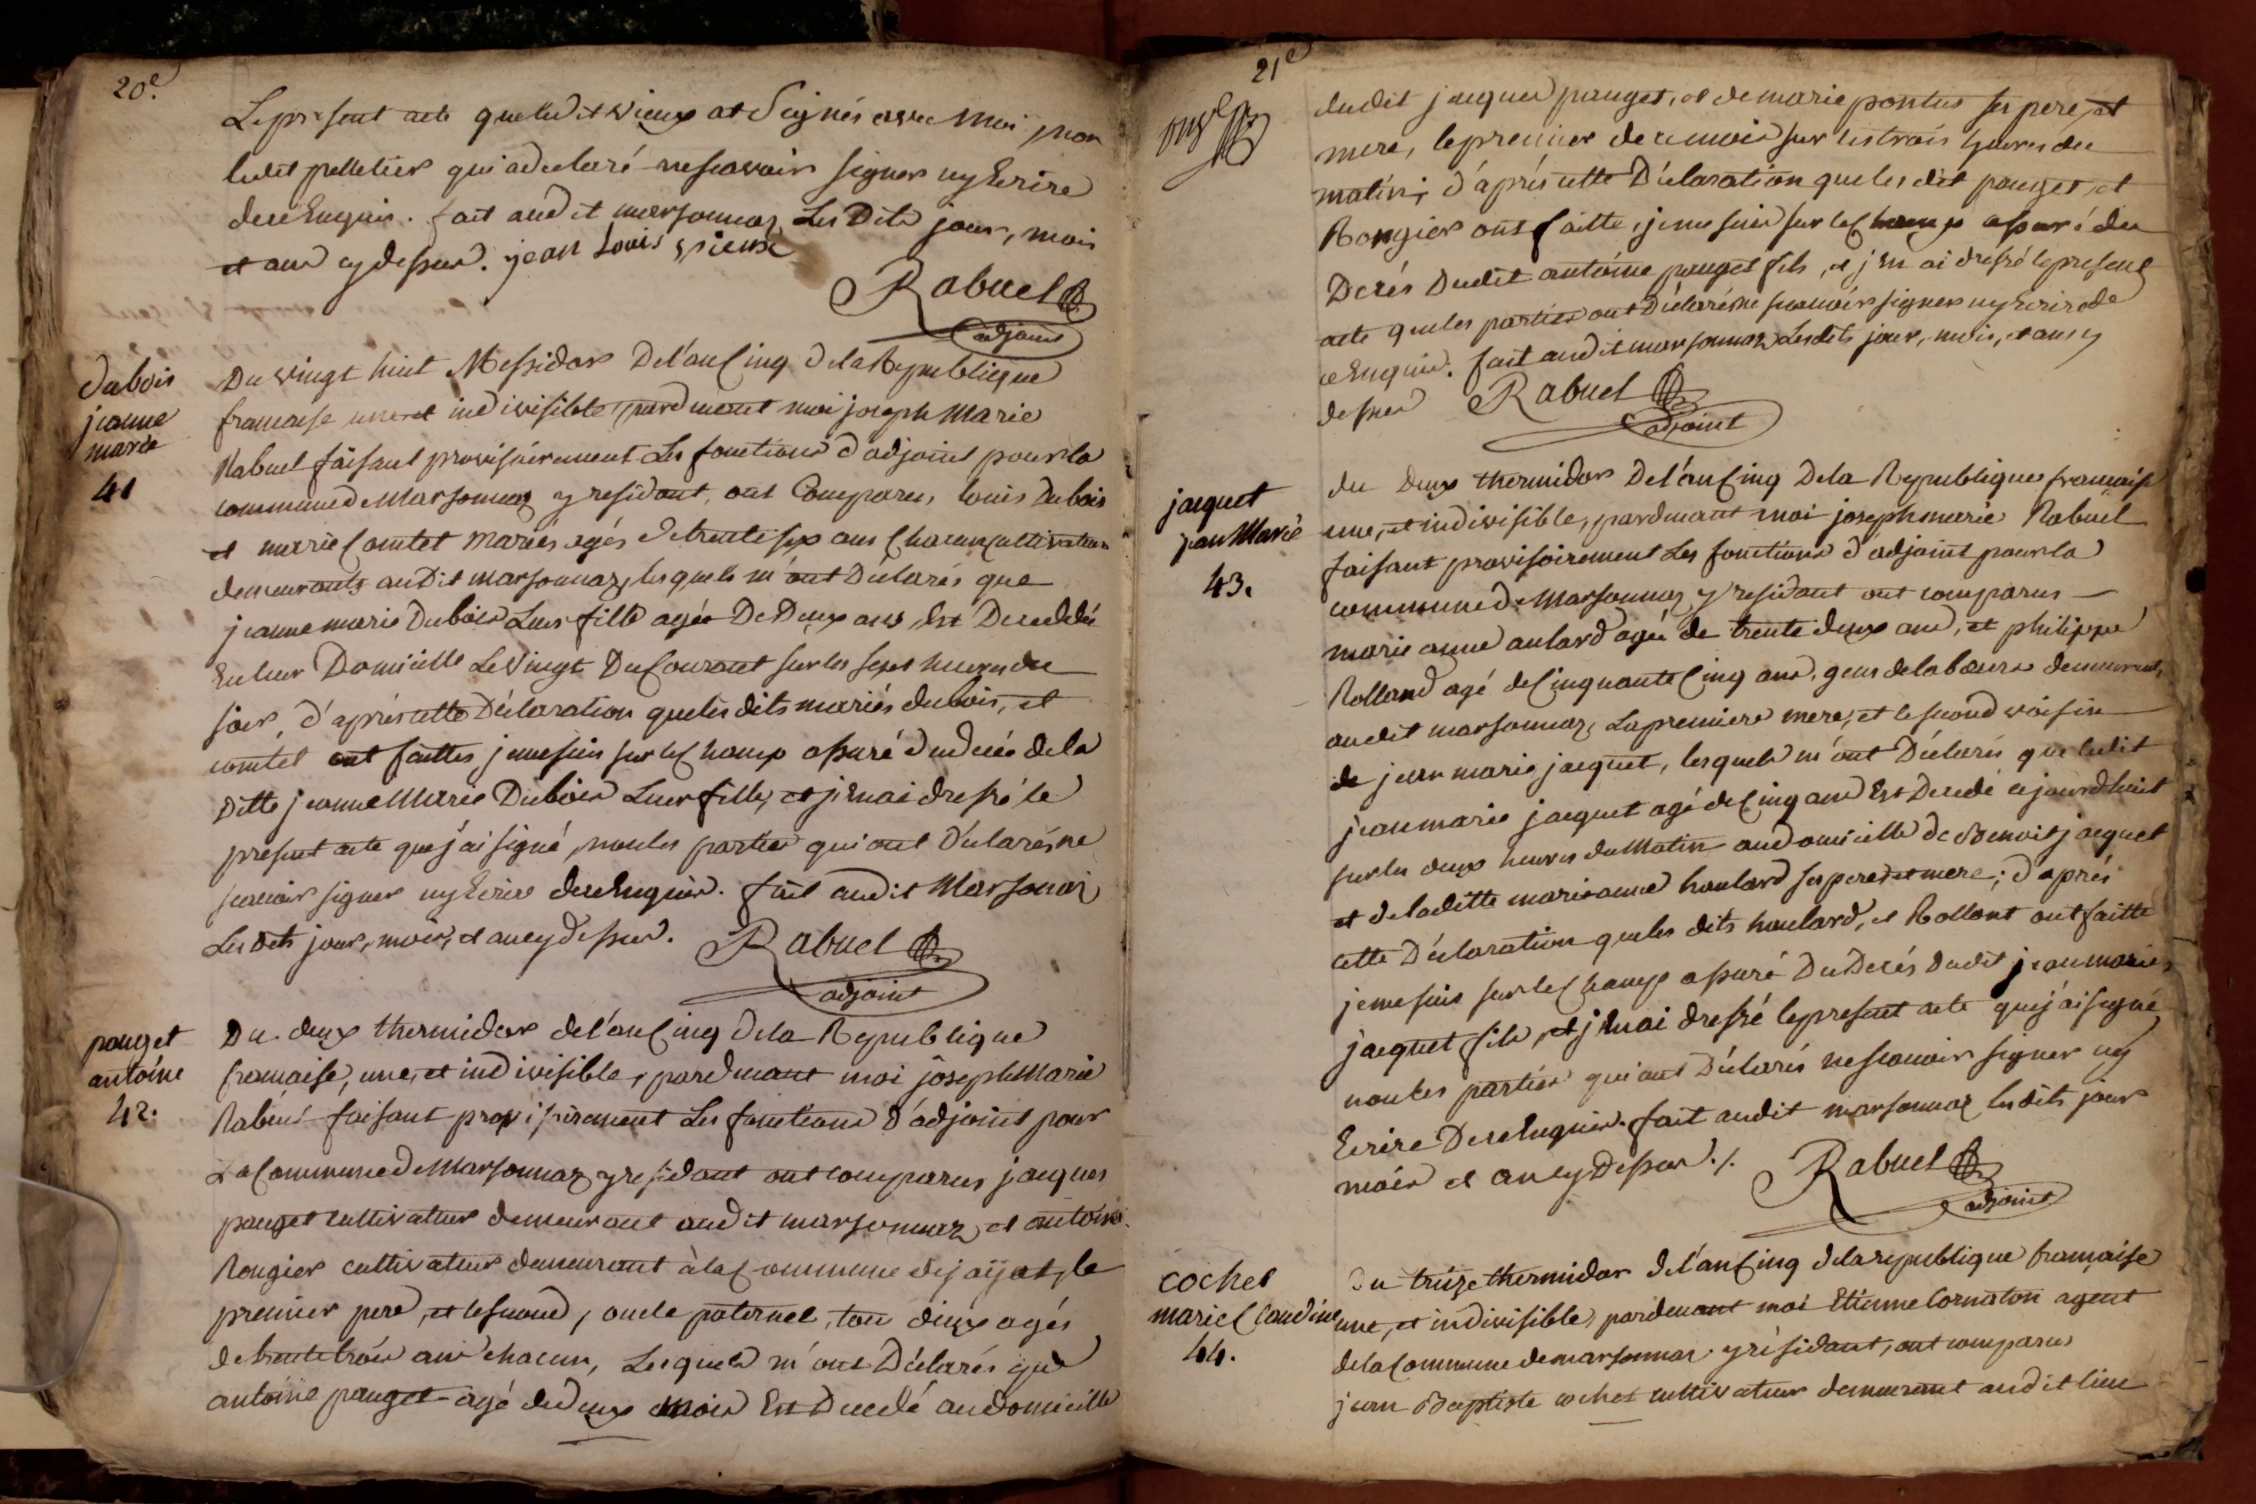 20.e
Le present acte que ledit Vieux at Signés avec Moi, non
ledit pelletier qui a declaré ne scavoir signer ny Ecrire
de ce Enquis. fait audit marsonnaz Les Dits jour, mois
et an cy dessus. jean Louis vieux
Rabuel
adjoint
dubois
jeanne
marie
41
Du vingt huit Messidor De l'an Cinq de la Republique
francaise une et indivisible, pardevant moi joseph Marie
Rabuel faisant provisoirement Les fonctions d'adjoint pour la
commune de Marsonnaz y residant, ont Comparus, louis Dubois
et marie Comtet Mariés agés de trente six ans Chacun cultivateurs
demeurants audit marsonnaz, lesquels m'ont Déclarés que
jeanne marie Dubois Leur fille agée De Deux ans, Est Decedée
En leur Domicille Le Vingt Du Courant sur les sept heures du
soir, d'aprés cette Déclaration que les dits mariés dubois, et
comtet ont faittes je me suis sur le Champ assuré du decés de la
ditte jeanne Marie Dubois Leur fille, et j'En ai dressé le
present acte que j'ai signé, non les parties qui ont déclaré ne
scavoir signer ny Ecrire de ce Enquis. fait audit Marsonnaz
Les dits jour, mois, et an cy dessus.
Rabuel
adjoint
pauget
antoine
42.
Du deux thermidor de l'an Cinq de la Republique
francaise, une, et indivisible, pardevant moi joseph Marie
Rabuel faisant provisoirement Les fonctions d'adjoint pour
La Commune de Marsonnaz y residant ont comparus jacques
pauget cultivateur demeurant audit marsonnaz, et antoine
Rongier cultivateur demeurant à la Commune de jayat, le
premier pere, et le second, oncle paternel, tous deux agés
de trente trois ans chacun, Lesquels m'ont Déclarés que
antoine pauget agé de deux mois Est Decedé au domicille
21e
dudit jacques pauget, et de marie pontus ses pere, et
mere, le premier de ce mois sur les trois heures du
matin; d'aprés cette Déclaration que les dit pauget, et
Rongier ont faitte, je me suis sur le Champ assuré du
Decés Dudit antoine pauget fils, et j'En ai dressé le present
acte que les parties ont Déclaré ne scavoir signer ny Ecrire de
ce Enquis. fait audit marsonnaz Les dits jour, mois, et an cy
dessus
Rabuel
adjoint
jacquet
jean Marie
43.
du Deux thermidor De l'an Cinq De la Republique francaise
une, et indivisible, pardevant moi joseph marie Rabuel
faisant provisoirement Les fonctions d'adjoint pour la
commune de Marsonnaz y residant ont comparus
marie anne aulard agée de trente deux ans, et philippe
Rolland agé de Cinquante Cinq ans, gens de labeurs demeurants
audit marsonnaz, La premiere mere, et le second voisin
de jean marie jacquet, lesquels m'ont Déclarés que ledit
jean marie jacquet agé de Cinq ans Est Decedé cejourd'huit
sur les deux heures du Matin au domicille de Benoit jacquet
et de laditte marie anne haulard ses pere et mere; d'aprés
cette Déclaration que les dits haulard, et Rollant ont faitte
je me suis sur le Champ assuré Du Decés dudit jean marie
jacquet fils, et j'En ai dressé le present acte que j'ai signé
non les parties qui ont Déclarés ne scavoir signer ny
Ecrire De ce Enquis. fait audit marsonnaz les dits jour
mois et an cy Dessus ./.
Rabuel
adjoint
cochet
marie Claudine
44.
Du treize thermidor de l'an Cinq de la republique française
une, et indivisible, pardevant moi Etienne Cornaton agent
de la Commune de marsonnaz y résidant, ont comparus
jean Baptiste cochet cultivateur demeurant audit lieu